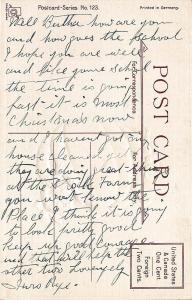 Postcard-Series No. 123.
Printed in Germany.
Well Bertha how are you
and how goes the school
I hope you are well
and like your school
the time is going
fast it is most
Christmas now
and I haven't got my
house cleaned yet
they are doing great things
at the Farm
you wont know the
Place I think it is going to
look pretty good
keep up good courage
and that will help the
other two
POST CARD.
for Correspondence
for Address
United States
& Canada
One Cent
Foreign
Two Cents.